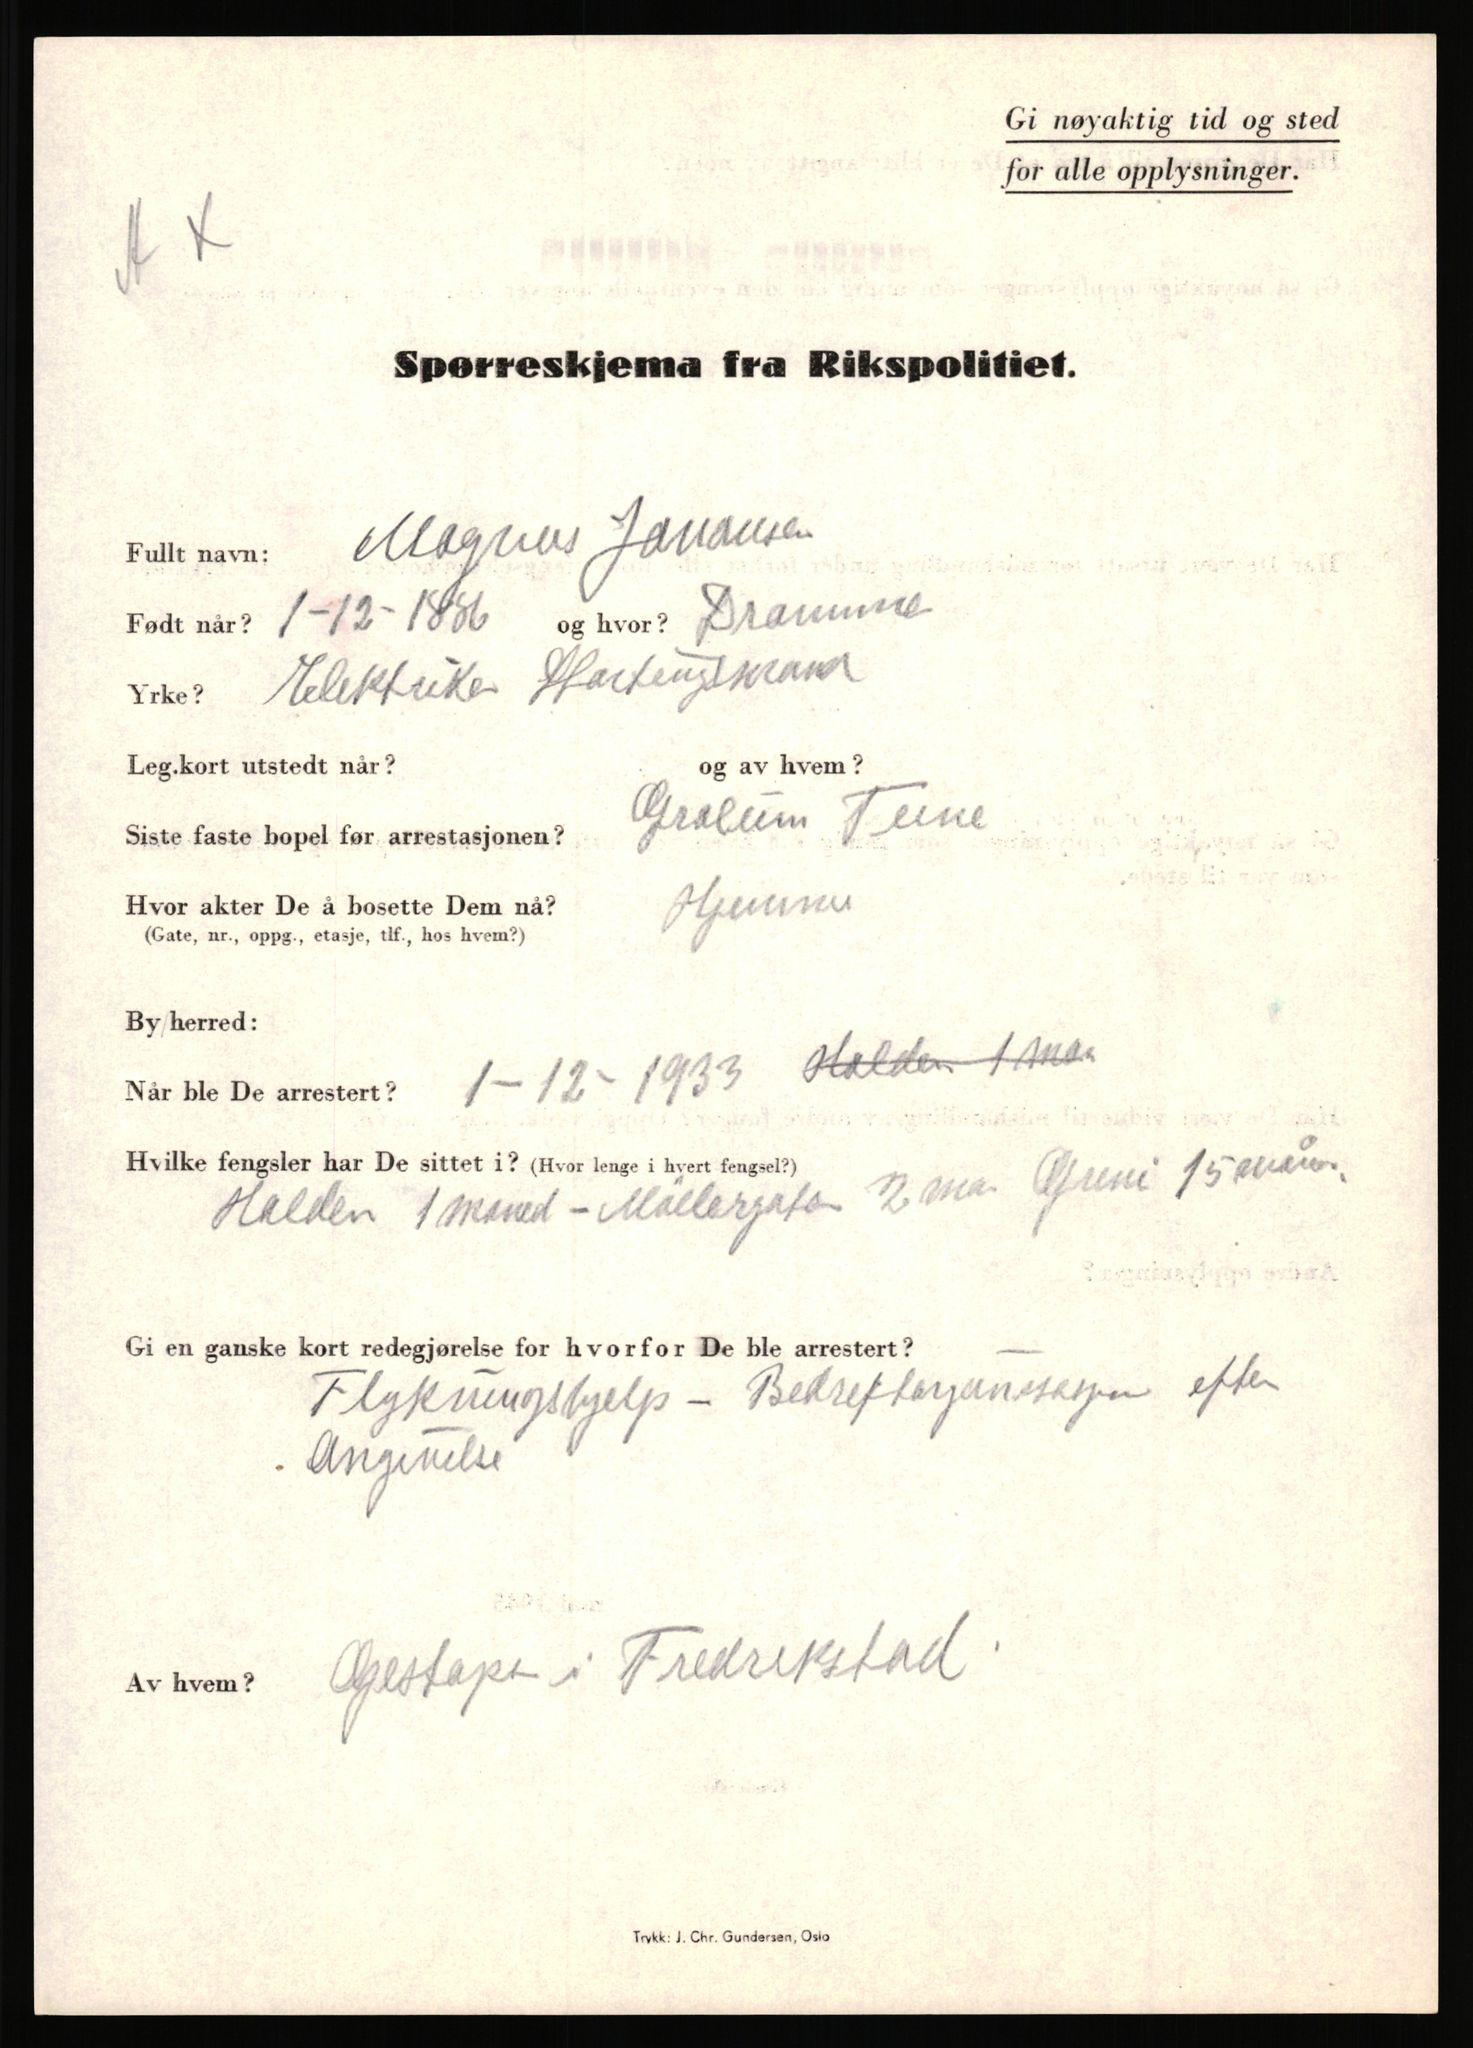 Gi nøyaktig tid og sted
for alle opplysninger.
Spørreskjema fra Rikspolitiet.
Fullt navn: Magnus Johansen
Født når? 1-12-1886 og hvor? Dramme
Yrke? Elektriker
Leg.kort utstedt når? og av hvem?
Siste faste bopel før arrestasjonen? Grålum Tune
Hvor akter De å bosette Dem nå? Hjemme
(Gate, nr., oppg., etasje, tlf., hos hvem?)
By/herred:
Når ble De arrestert? 1-12-1933 Halden 1 mån
Hvilke fengsler har De sittet i? (Hvor lenge i hvert fengsel?)
Halden 1 måned - Möllergaten 2 mån Grini 15 mån.
Gi en ganske kort redegjørelse for hvorfor De ble arrestert?
Flyktningshjelp - Bedriftorganisasjon efter
Angivelse
Av hvem? Gestapo i Fredrikstad.
Trykk: J. Chr. Gundersen, Oslo